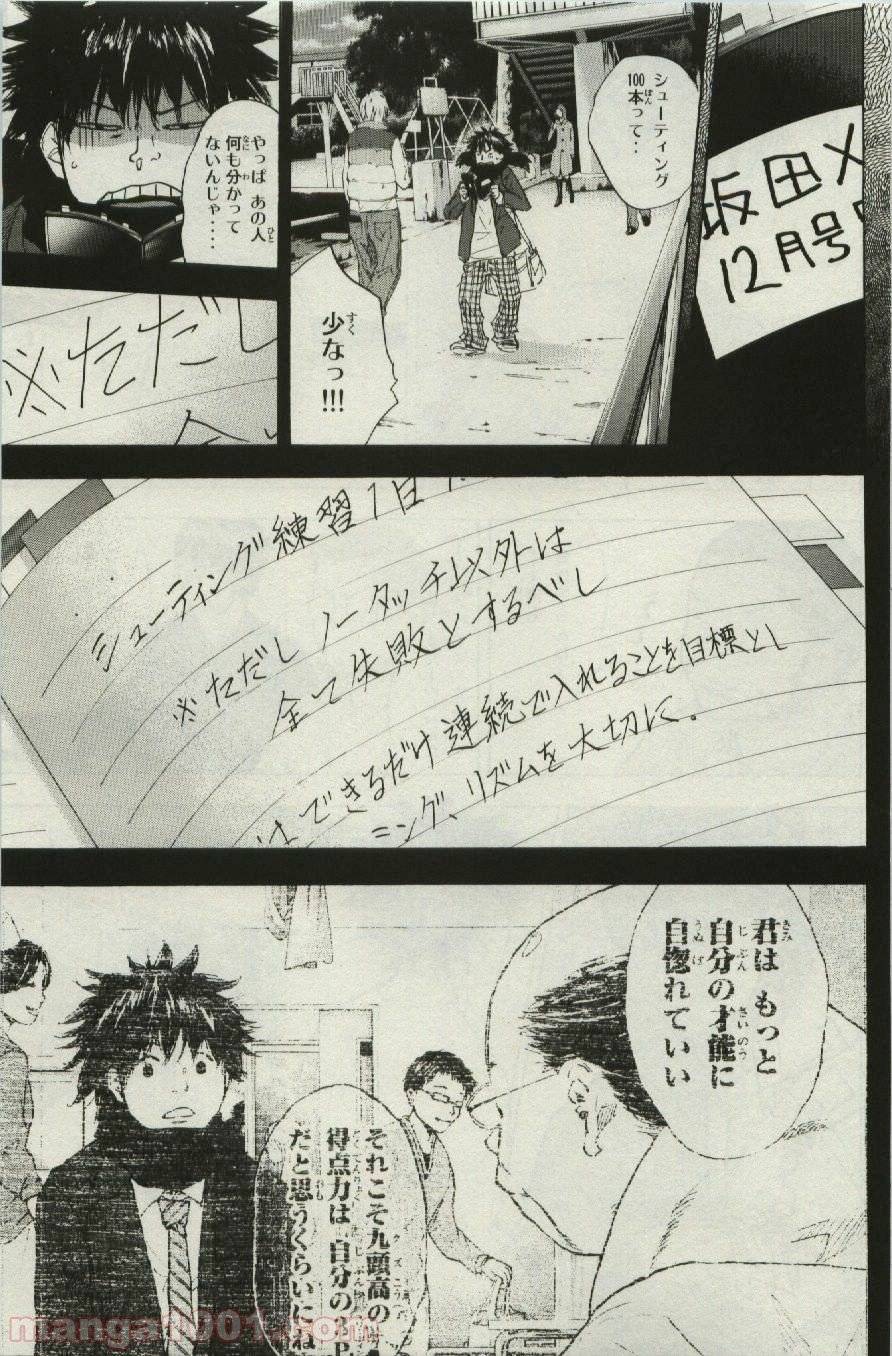 坂田メ
12月号
シューティング
100本って‥
少なっ!!!
やっぱ あの人
何も分かって
ないんじゃ‥‥
※ただし
シューティング練習1日
※ただしノータッチ以外は
全て失敗とするべし
はできるだけ連続で入れることを目標とし
ング、リズムを大切に。
君は もっと
自分の才能に
自惚れていい
それこそ九頭高の
得点力は 自分の3P
だと思うくらいにね
manga1001.com